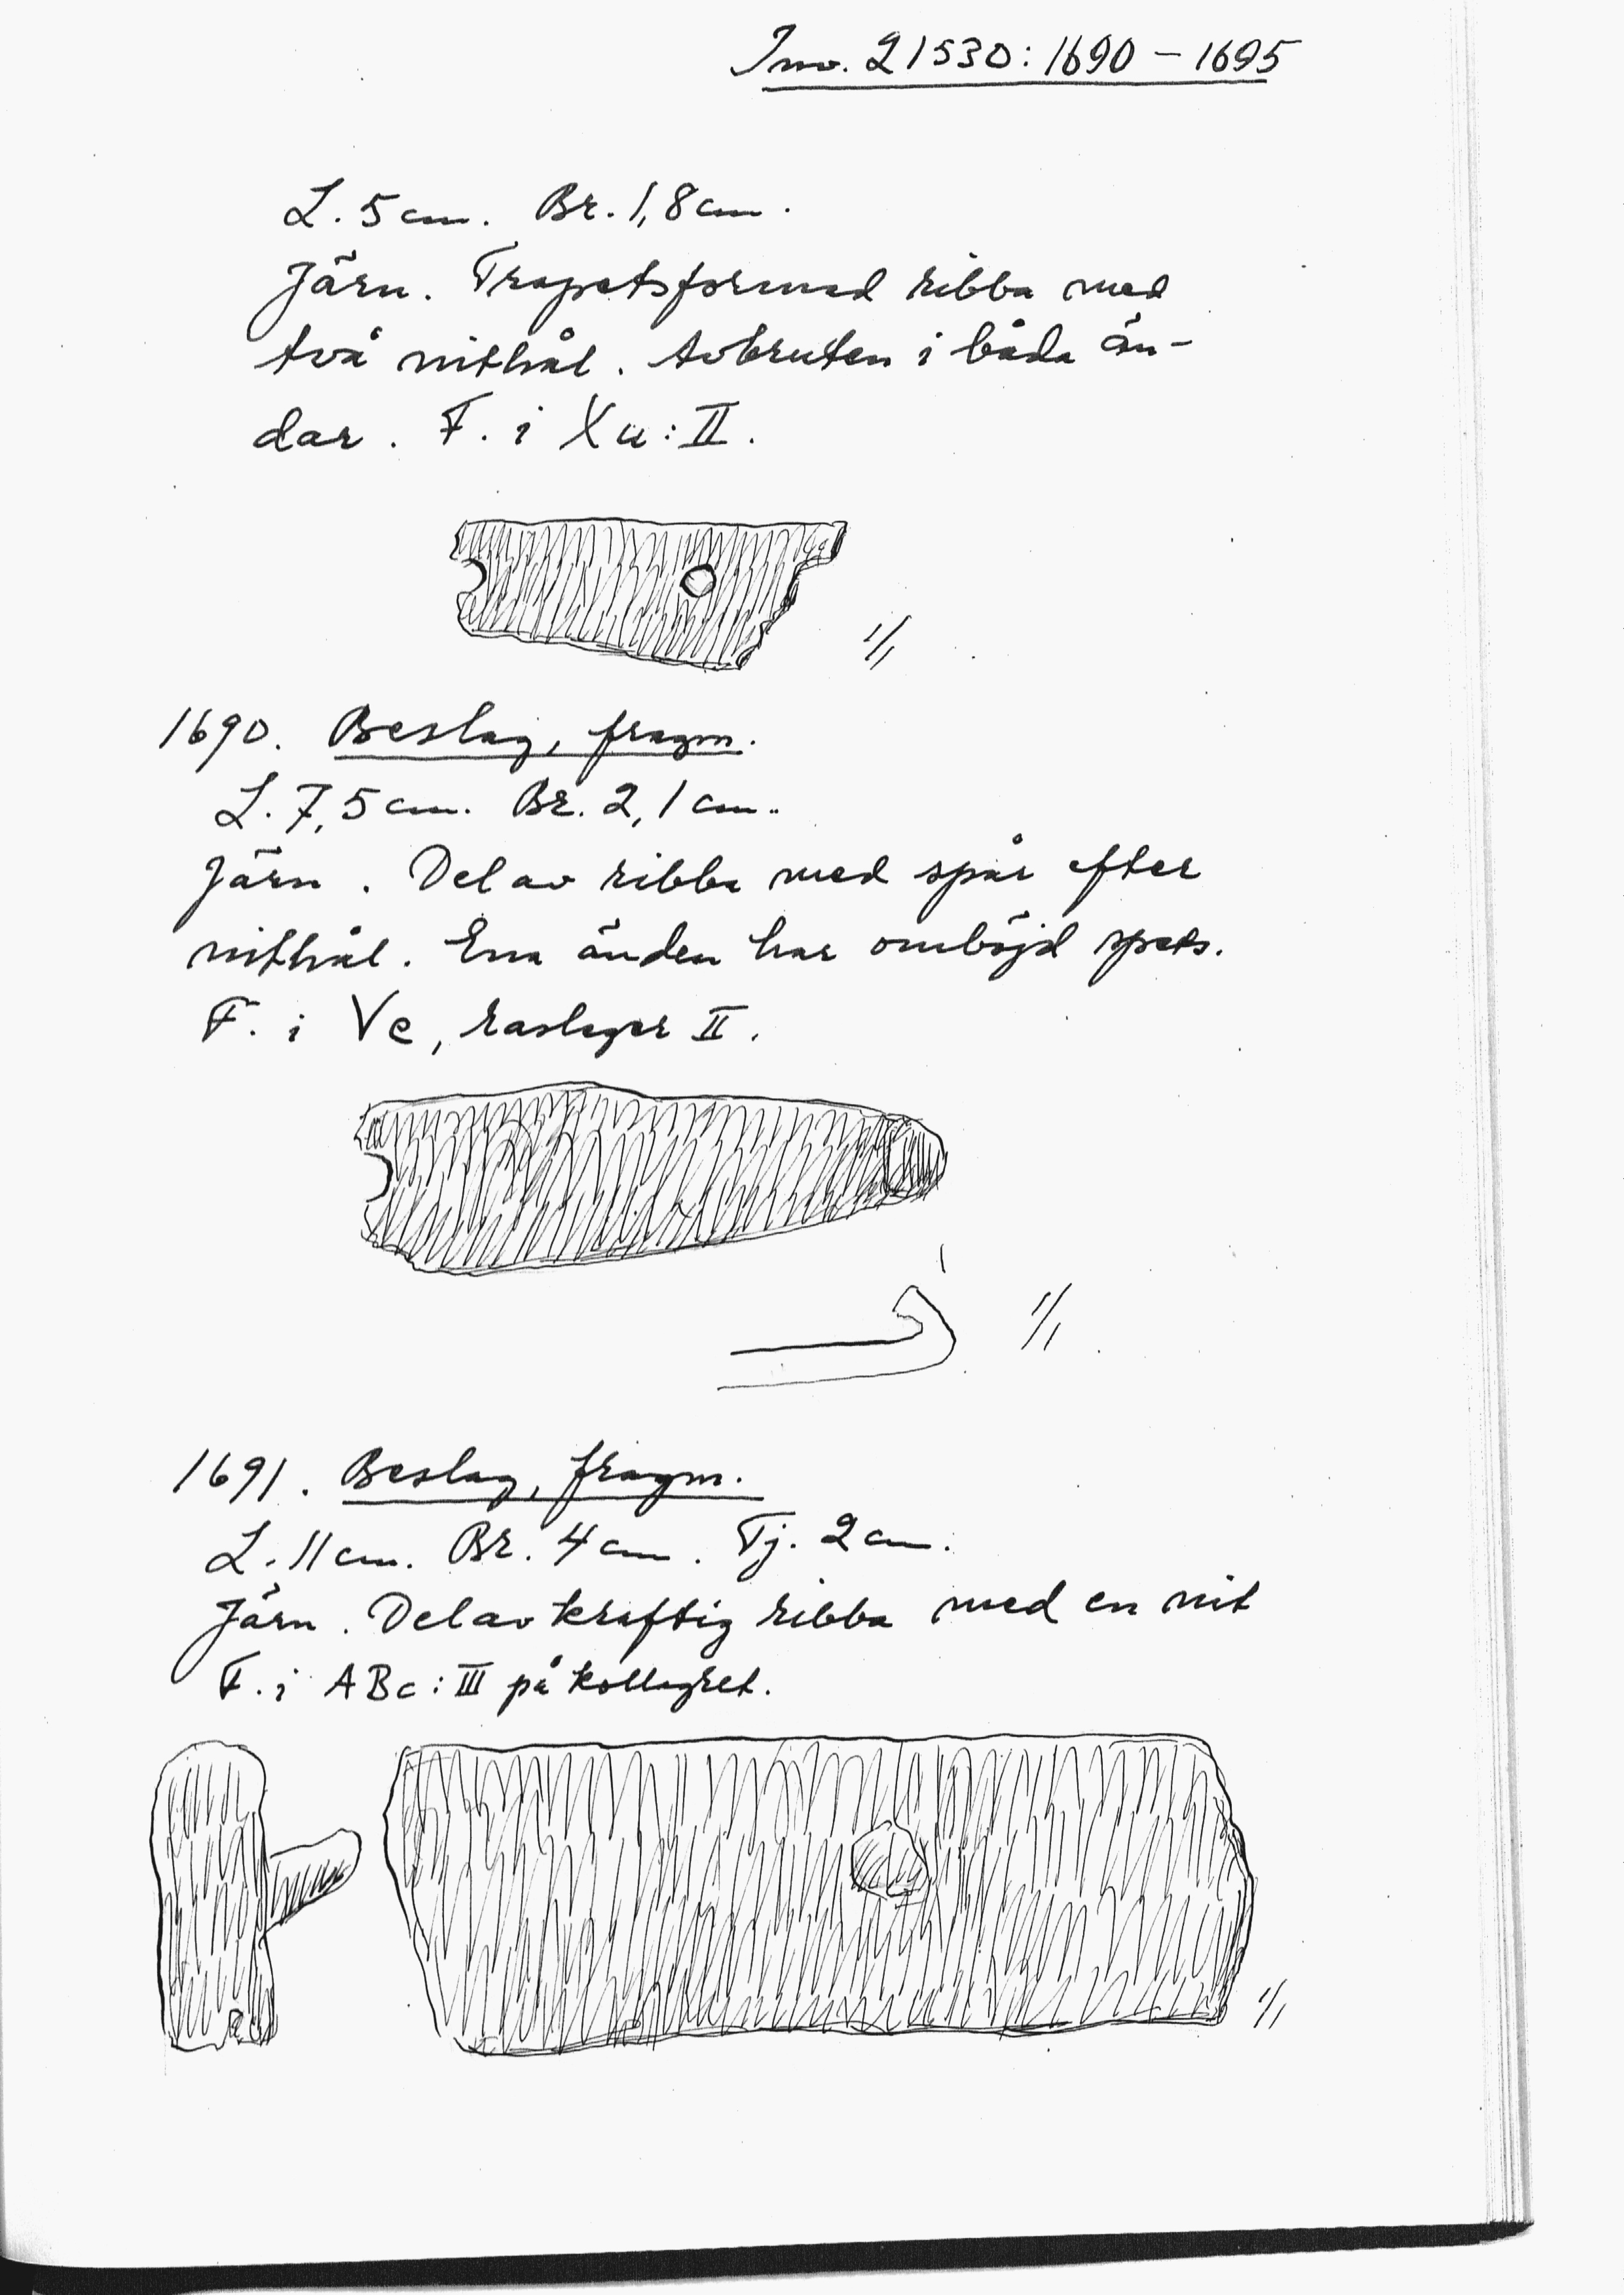 Inv. 21530:1690 – 1695
L. 5 cm. Br. 1,8 cm.
Järn. Trapetsformad ribba med
två nithål. Avbruten i båda än-
dar. F. i Xu:II.
1/1
1690. Beslag, fragm.
L. 7,5 cm. Br. 2,1 cm.
Järn. Del av ribba med spår efter
nithål. Ena änden har omböjd spets.
F. i Ve, raslager II.
1/1
1691. Beslag, fragm.
L. 11 cm. Br. 4 cm. Tj. 2 cm.
Järn. Del av kraftig ribba med en nit
F. i ABc:III på kollagret.
1/1